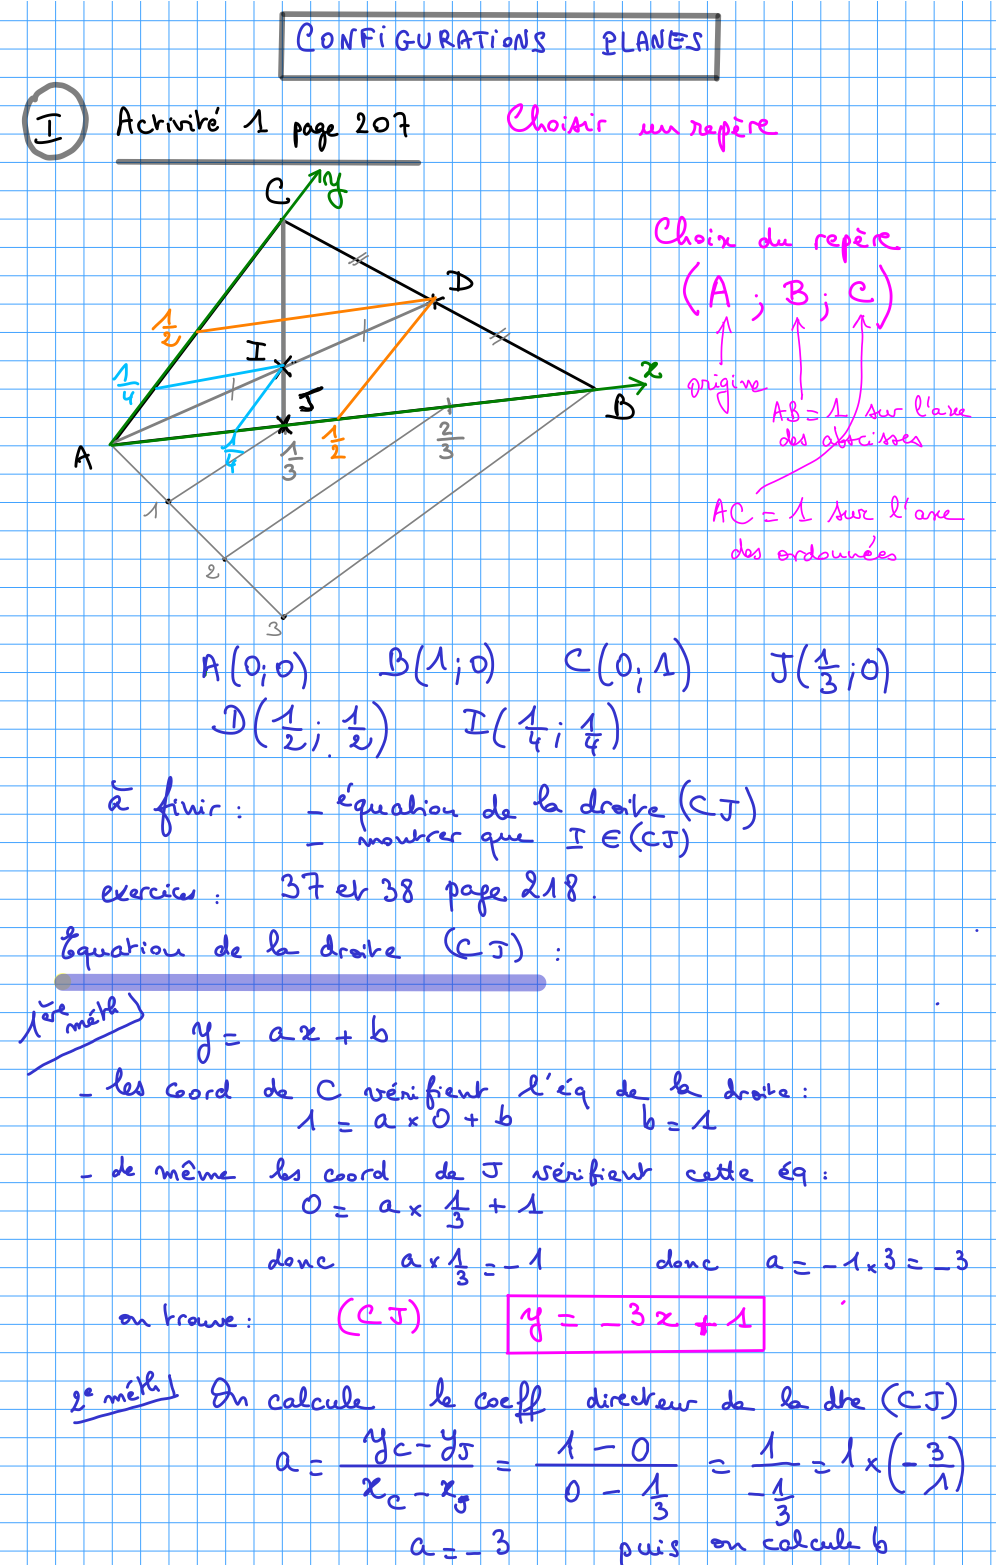 CONFIGURATIONS PLANES
I Activité 1 page 207 Choisir un repère
C y
Choix du repère
(A ; B ; C)
D
1/2
I
1/4
J
x
B
A
1/4 1/3 1/2 2/3
origine
AB = 1 sur l'axe
des abscisses
1
AC = 1 sur l'axe
des ordonnées
2
3
A(0;0) B(1;0) C(0;1) J(1/3;0)
D(1/2; 1/2) I(1/4; 1/4)
à finir : - équation de la droite (CJ)
- montrer que I ∈ (CJ)
exercices : 37 et 38 page 218.
Equation de la droite (CJ) :
1ère méth
y = ax + b
- les coord de C vérifient l'éq de la droite :
1 = a × 0 + b b = 1
- de même les coord de J vérifient cette éq :
0 = a × 1/3 + 1
donc a × 1/3 = -1 donc a = -1 × 3 = -3
on trouve : (CJ) y = -3x + 1
2e méth On calcule le coeff directeur de la dte (CJ)
a = (yC - yJ)/(xC - xJ) = (1 - 0)/(0 - 1/3) = 1/(-1/3) = 1 × (-3/1)
a = -3 puis on calcule b